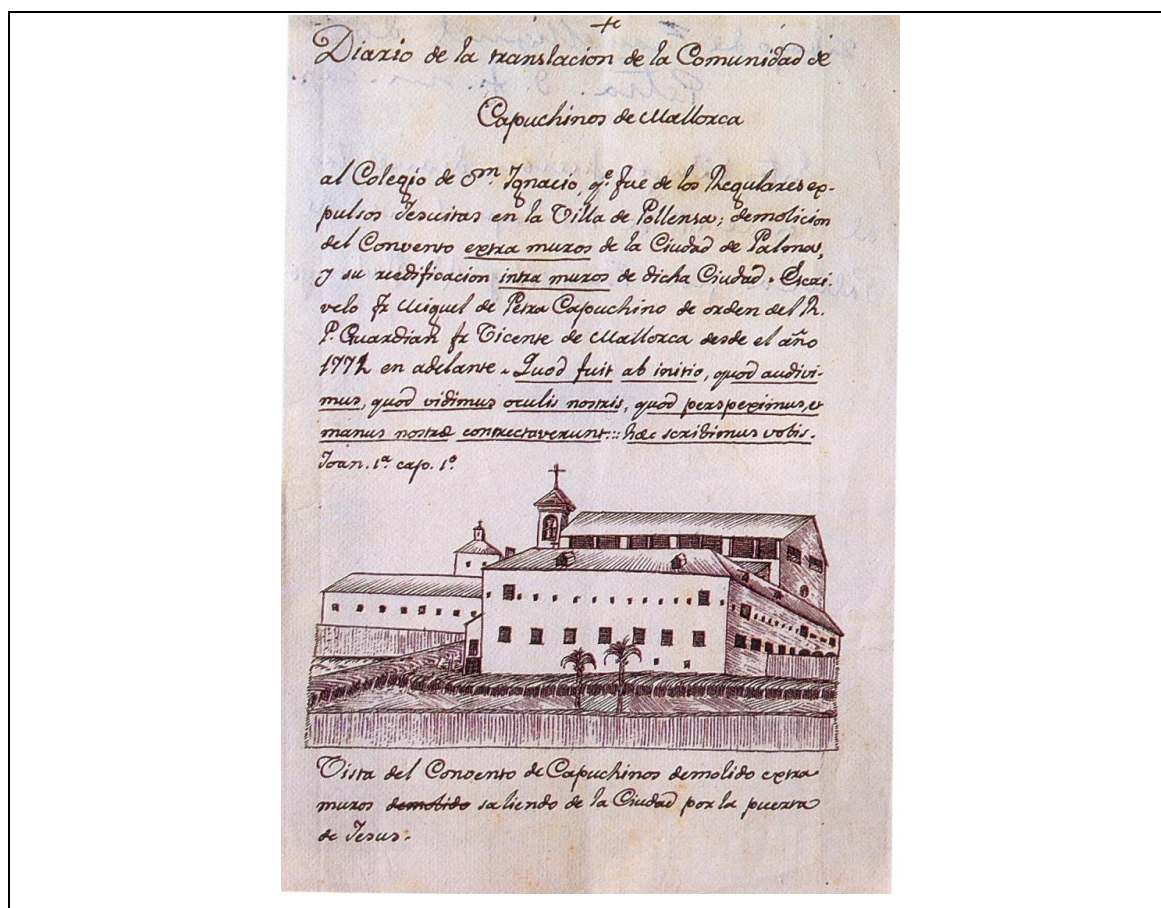 Diario de la translacion de la Comunidad de
Capuchinos de Mallorca
al Colegio de Sn. Ignacio, qe. fue de los Regulares ex-
pulsos Jesuitas en la Villa de Pollensa; demolicion
del Convento extra muros de la Ciudad de Palma,
y su reedificacion intra muros de dicha Ciudad. Escri-
velo fr Miguel de Petra Capuchino de orden del R.
P. Guardian fr Vicente de Mallorca desde el año
en adelante. Quod fuit ab initio, quod audivi-
mus, quod vidimus oculis nostris, quod perspeximus, &
manus nostræ contrectaverunt::: hæc scribimus vobis.
Joan. 1ª cap. 1º
Vista del Convento de Capuchinos demolido extra
muros demolido saliendo de la Ciudad por la puerta
de Jesus.